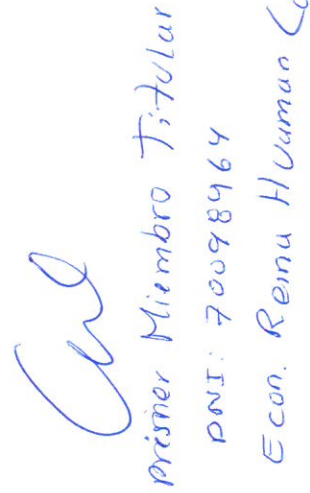 Priemer Miembro Titular
DNI: 70098964
Econ. Reinu Huaman